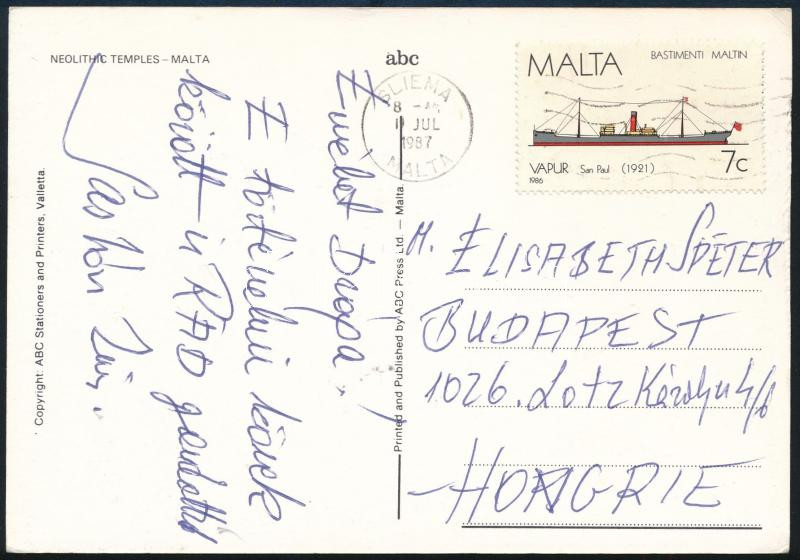 NEOLITHIC TEMPLES – MALTA
abc
MALTA
BASTIMENTI MALTIN
VAPUR San Paul (1921)
1986
7c
SLIEMA
JUL
1987
MALTA
Copyright: ABC Stationers and Printers, Valletta.
Printed and Published by ABC Press Ltd. — Malta.
Erzsébet Drága
E történelmi kövek
között is RÁD gondoltál
ELISABETH SPÉTER
BUDAPEST
1026. Lotz Károly u 4/b
HONGRIE